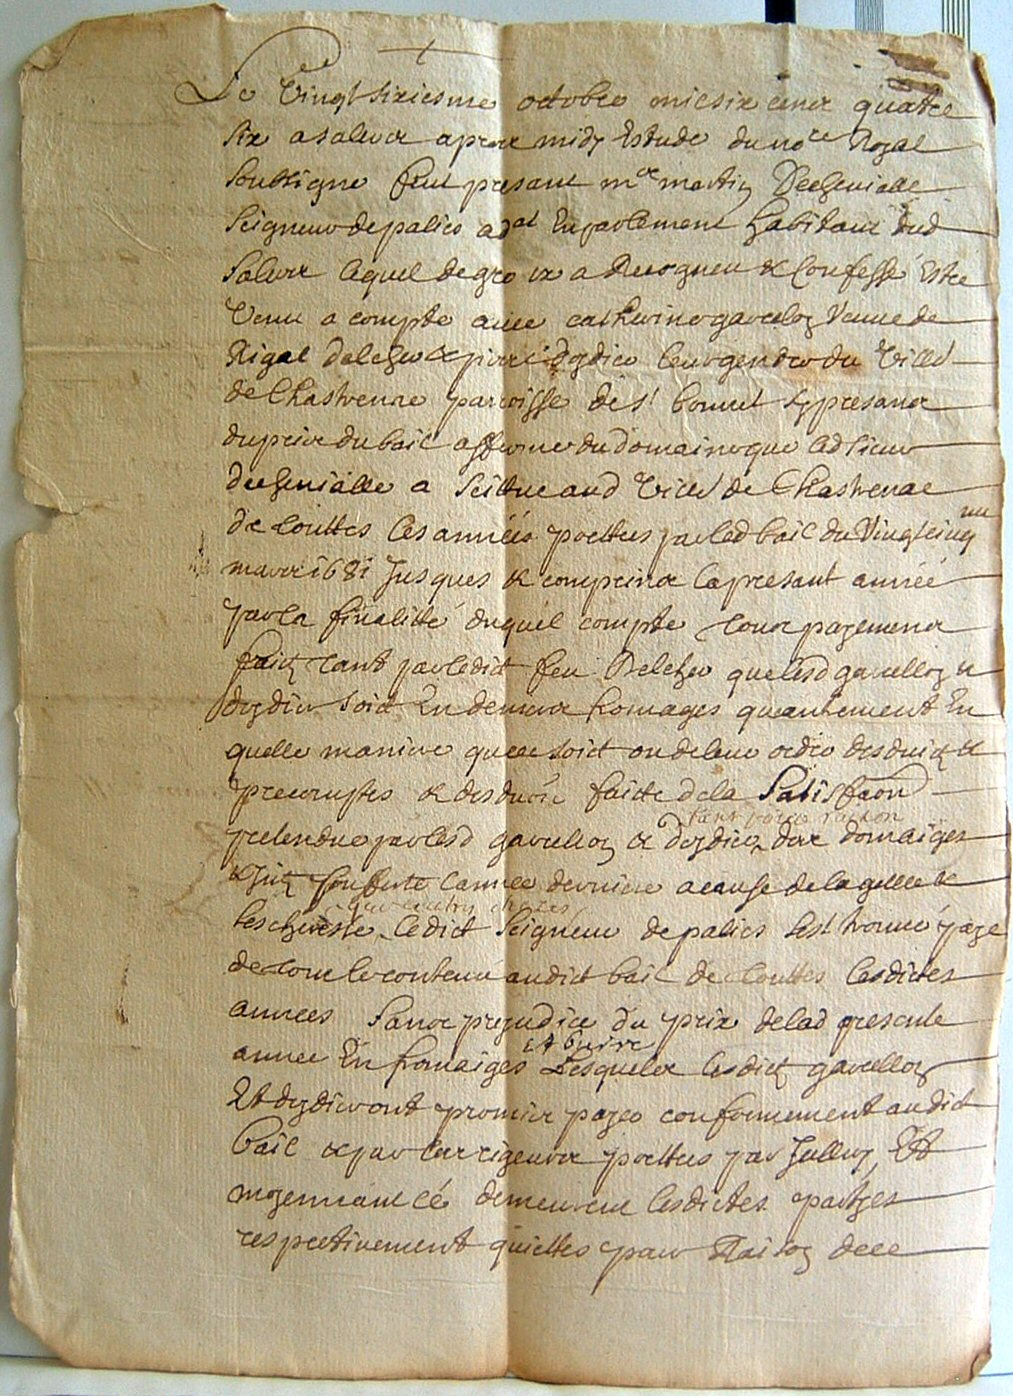 Le Vingt sixiesme octobre mil six cens quatre
six a salers apres midy Estude du no.re Royal
soubsigne feut presant m.re martin
Seigneur de palies ad.at En parlement habitant dud
Salers lequel de gre a Recogneu & Confessé Estre
Venu a compte avec catherine garcelon Veuve de
Rigal delcher & pierre leur gendre du Villa
de Chastrenne parroisse de st bonnet sy presans
du prix du bail afferme du domaine que led sieur
a scittue aud Villa de Chastrenne
de touttes les années portees par led bail du Vingt cinq
mars 1681 Jusques & comprins la presant année
par la finalitté duquel compte tous payemens
faictz tant par ledict feu Delcher que lesd garcellon &
soit En deniers fromages quautrement En
quelle maniere que ce soit ou de leur ordre desduictz &
precomptes & faicte de la Satisfaon
tant pour raison
pretendue par lesd garcellon & des domaiges
soufferte l'annee derniere a cause de la gellee &
que autres chozes
ledict Seigneur de palies sest trouve paye
de tout le contenu audict bail de touttes lesdictes
annees Sans prejudice du prix de lad presente
Et beurre
annee En fromaiges Lesquels lesdictz garcellon
Et ont promis payer conformement audict
bail & par les rigeurs portees par Jcelluy Et
moyennant ce demeurent lesdictes partyes
respectivement quiettes pour Raison de ce